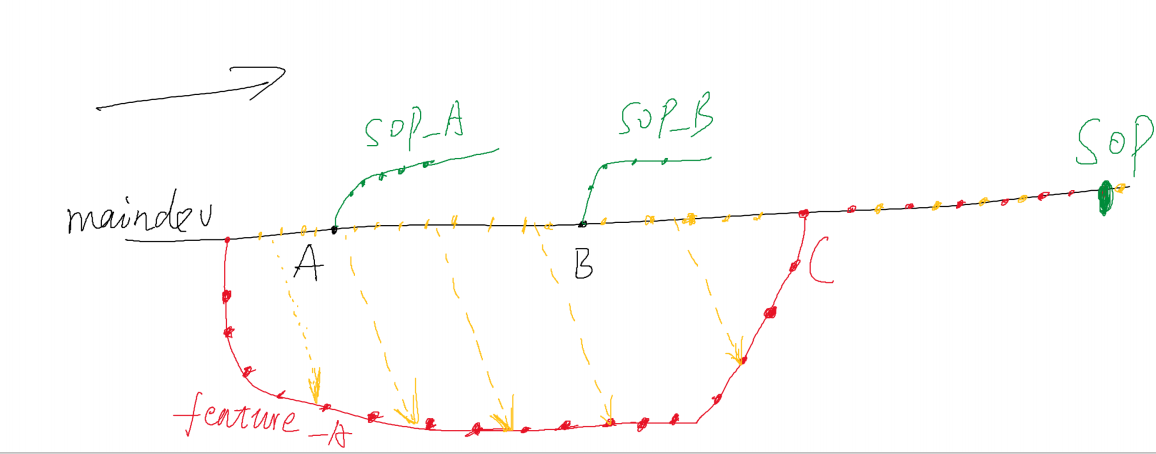 SOP_A
SOP_B
SOP
maindev
A
B
C
feature_A